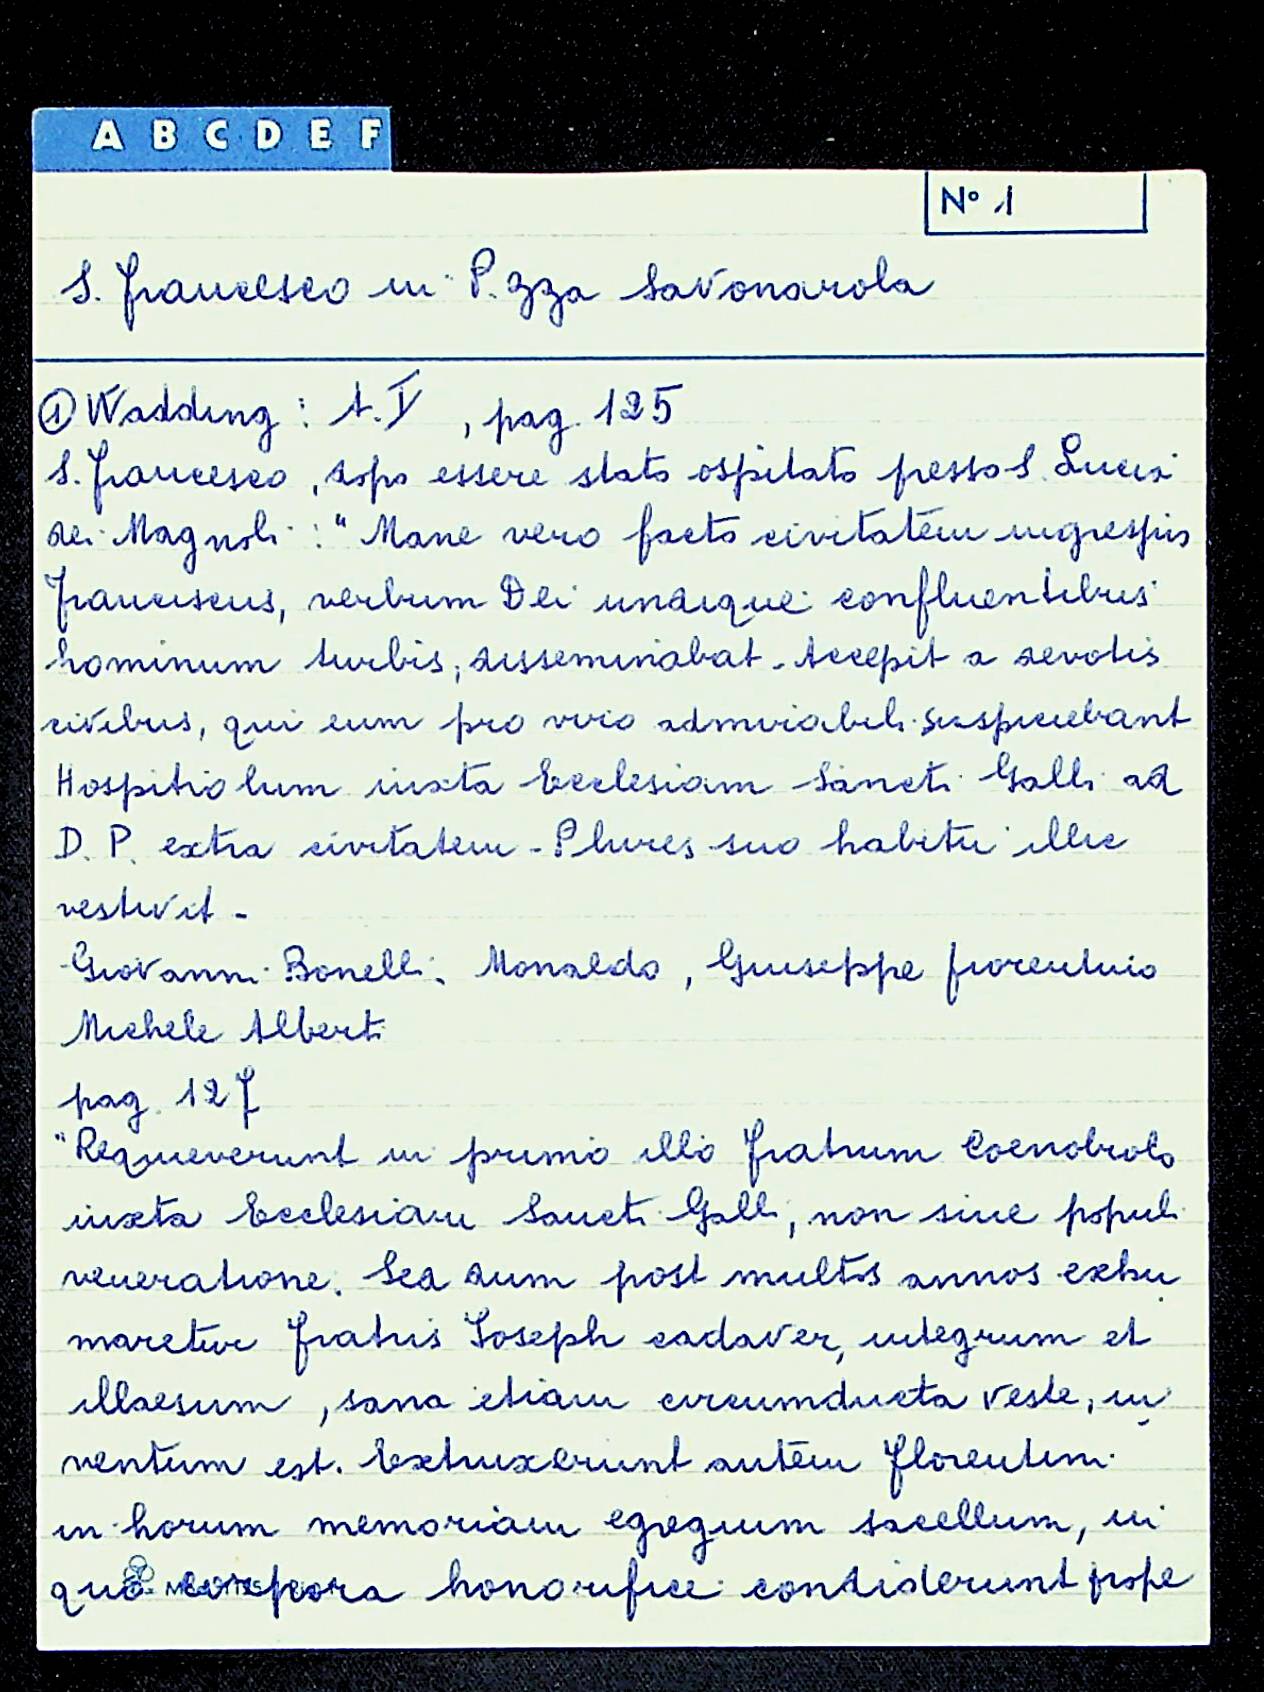 A B C D E F
N° 1
S. Francesco in P.zza Savonarola
① Wadding : t. V , pag. 125
S. Francesco , dopo essere stato ospitato presso S. Lucia
dei Magnoli : " Mane vero facto civitatem ingressus
Franciscus, verbum Dei undique confluentibus
hominum turbis, disseminabat - Accepit a devotis
civibus, qui eum pro viro admirabili suspiciebant
Hospitiolum iuxta Ecclesiam Sancti Galli ad
D. P. extra civitatem - Plures suo habitu illic
vestivit -
Giovanni Bonelli, Monaldo , Giuseppe fiorentino
Michele Alberti
pag. 127
"Requieverunt in primo illo fratrum Coenobiolo
iuxta Ecclesiam Sancti Galli, non sine populi
veneratione. Sed dum post multos annos exhu
maretur fratris Joseph cadaver, integrum et
illaesum , sana etiam circumducta veste, in
ventum est. Extruxerunt autem florentini
in horum memoriam egregium sacellum, in
quo corpora honorifice condiderunt prope